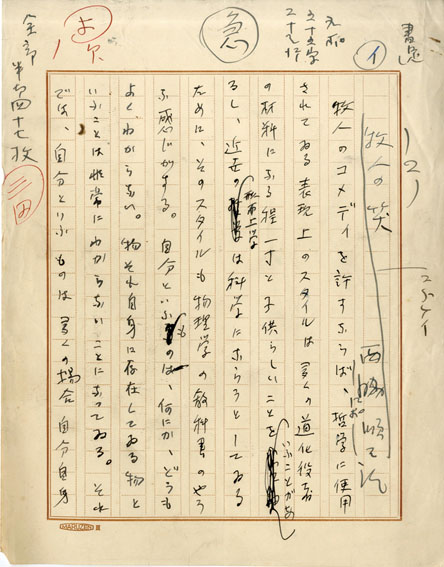 書き出し
九ポ
五十五字
二十九行
急
イ
全部
半ペラ四十七枚
(2)
牧人の笑
西脇順三郎
牧人のコメディを許すならば、哲学に使用
されてゐる表現上のスタイルは多くの道化役者
の材料になる程一寸と子供らしいことをいふことがあ
るし、近世の形而上学は科学にならうとしてゐる
ために、そのスタイルも物理学の教科書のやう
な感じがする。自分といふものは、何にか、どうも
よくわからない。物それ自身に存在してゐる物と
いふことは非常にわからないことになつてゐる。それ
では、自分といふものは多くの場合自分自身
MARUZEN